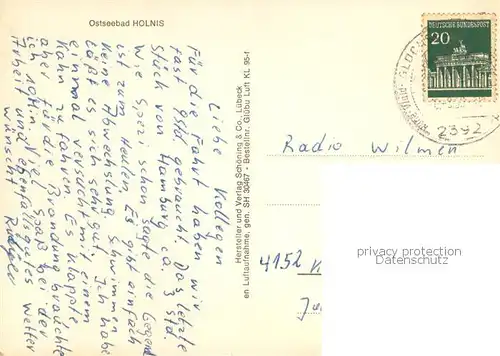 Ostseebad HOLNIS
Liebe Kollegen
Für die Fahrt haben wir
fast gebraucht. Das letzte
Stück von Hamburg ca. 3 Std.
Wie Spezi schon sagte die Gegend
ist zum Heulen. Es gibt einfach
keine Abwechslung. Schwimmen
läßt es sich sehr gut. Ich habe
einmal versucht mit einem
Kahn zu fahren. Es klappte
aber für die Brandung brauchte
ich 10 Min. Viel Spaß bei der
Arbeit und ebenfalls gutes Wetter
wünscht Rüdiger
Hersteller und Verlag Schöning & Co., Lübeck
en Luftaufnahme, gen. SH 30467 - Bestellnr. Glübu Luft KL 95-f
DEUTSCHE BUNDESPOST
20
2392
Radio Wilmen
4152
privacy protection
Datenschutz